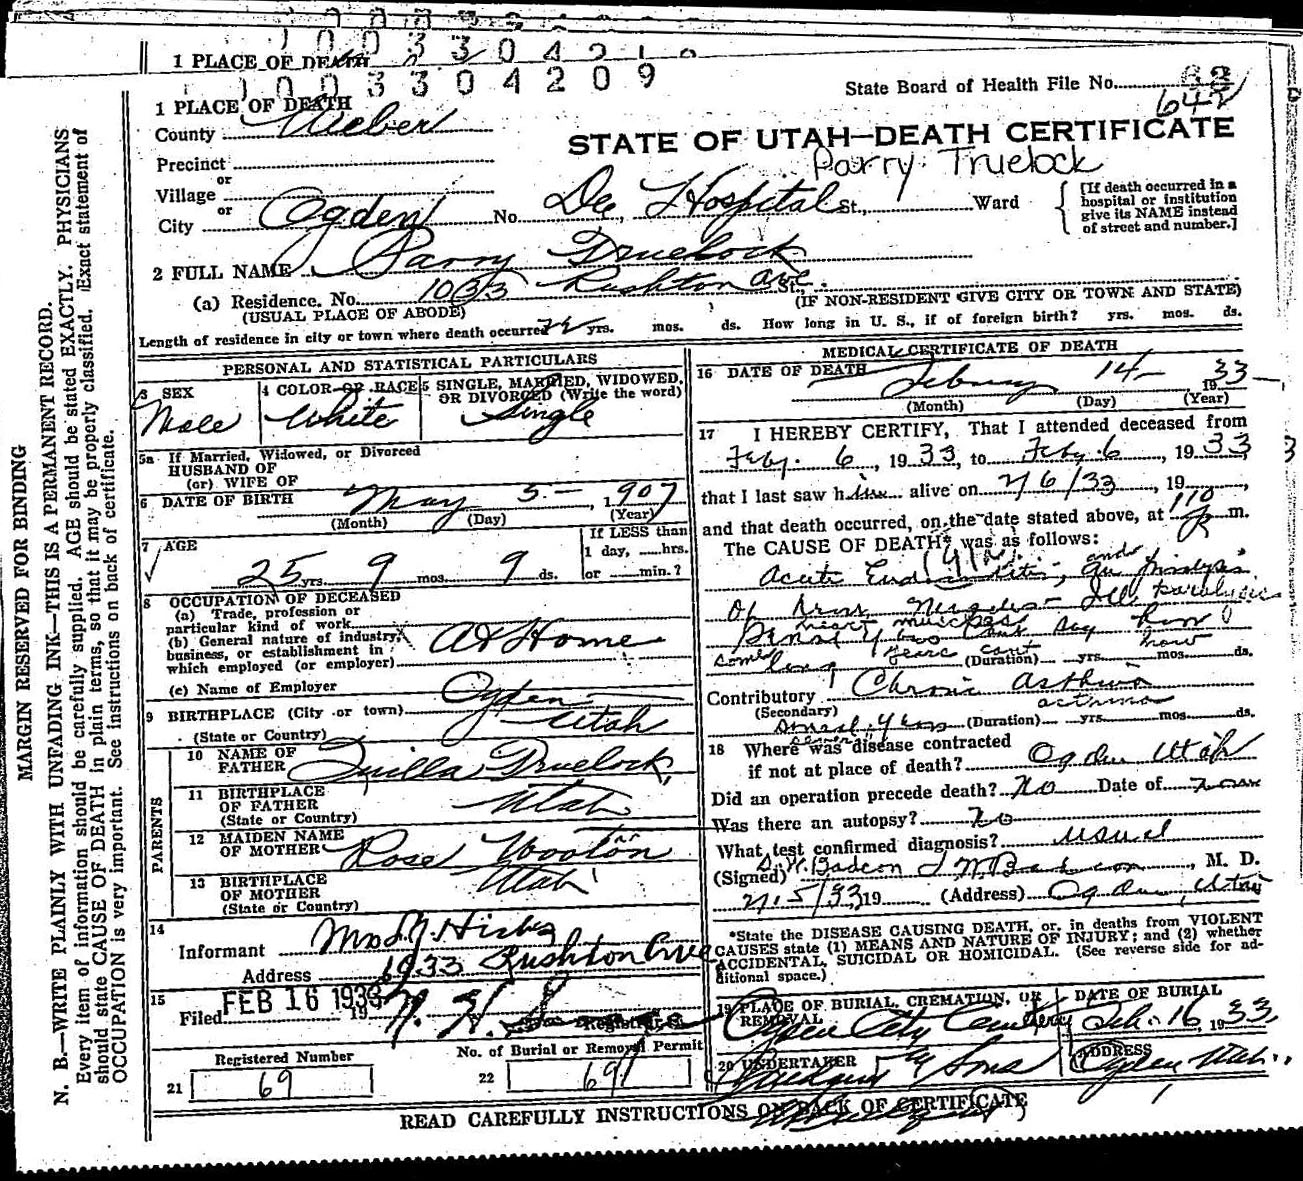 1 PLACE OF DEATH
1 0 0 3 3 0 4 2 0 9
State Board of Health File No.
642
1 PLACE OF DEATH
County Weber
STATE OF UTAH—DEATH CERTIFICATE
Parry Truelock
Precinct
or
Village
or
City Ogden No. Dee Hospital St., Ward
[If death occurred in a hospital or institution give its NAME instead of street and number.]
2 FULL NAME Parry Truelock
(a) Residence. No. 1033 Rushton Ave St.,
(USUAL PLACE OF ABODE) (IF NON-RESIDENT GIVE CITY OR TOWN AND STATE)
Length of residence in city or town where death occurred yrs. mos. ds. How long in U. S., if of foreign birth? yrs. mos. ds.
PERSONAL AND STATISTICAL PARTICULARS
3 SEX
Male
4 COLOR OR RACE
White
5 SINGLE, MARRIED, WIDOWED, OR DIVORCED (Write the word)
Single
5a If Married, Widowed, or Divorced
HUSBAND OF
(or) WIFE OF
6 DATE OF BIRTH May 5- 1907
(Month) (Day) (Year)
7 AGE
25 yrs. 9 mos. 9 ds.
If LESS than
1 day, hrs.
or min.?
8 OCCUPATION OF DECEASED
(a) Trade, profession or
particular kind of work
(b) General nature of industry,
business, or establishment in
which employed (or employer)
At Home
(c) Name of Employer
9 BIRTHPLACE (City or town) Ogden
(State or Country) Utah
PARENTS
10 NAME OF
FATHER Quilla Truelock
11 BIRTHPLACE
OF FATHER Utah
(State or Country)
12 MAIDEN NAME
OF MOTHER Rose Wooton
13 BIRTHPLACE
OF MOTHER Utah
(State or Country)
14
Informant Mrs
Address 1033 Rushton Ave
15
Filed FEB 16 1933 19
Registrar
Registered Number
21 69
No. of Burial or Removal Permit
22 69
MEDICAL CERTIFICATE OF DEATH
16 DATE OF DEATH February 14- 1933
(Month) (Day) (Year)
17 I HEREBY CERTIFY, That I attended deceased from
Feby. 6, 1933, to Feby. 6, 1933
that I last saw him alive on 2/6/33, 19,
and that death occurred, on the date stated above, at 110 P m.
The CAUSE OF DEATH* was as follows:
Acute Endocarditis, and
of heart muscles
years cant say how
long (Duration) yrs. mos. ds.
Contributory Chronic asthma
(Secondary) asthma
(Duration) yrs. mos. ds.
18 Where was disease contracted
if not at place of death? Ogden Utah
Did an operation precede death? No Date of
Was there an autopsy? No
What test confirmed diagnosis? usual
(Signed), M. D.
19 (Address) Ogden, Utah
*State the DISEASE CAUSING DEATH, or, in deaths from VIOLENT
CAUSES state (1) MEANS AND NATURE OF INJURY; and (2) whether
ACCIDENTAL, SUICIDAL OR HOMICIDAL. (See reverse side for ad-
ditional space.)
19 PLACE OF BURIAL, CREMATION, OR
REMOVAL
Ogden City Cemetery
DATE OF BURIAL
Feb. 16 1933
20 UNDERTAKER
& Sons
ADDRESS
Ogden Utah.
READ CAREFULLY INSTRUCTIONS ON BACK OF CERTIFICATE
MARGIN RESERVED FOR BINDING
N. B.—WRITE PLAINLY WITH UNFADING INK—THIS IS A PERMANENT RECORD.
Every item of information should be carefully supplied. AGE should be stated EXACTLY. PHYSICIANS
should state CAUSE OF DEATH in plain terms, so that it may be properly classified. Exact statement of
OCCUPATION is very important. See instructions on back of certificate.